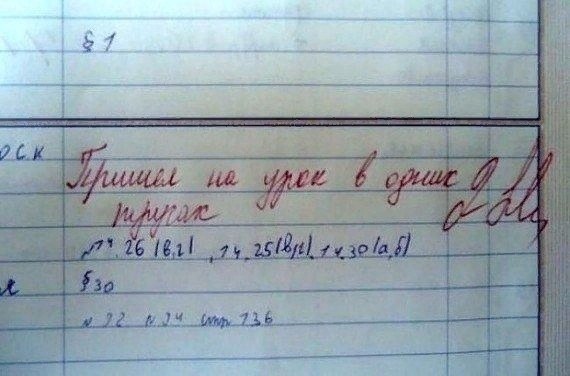 § 1
оск
Пришел на урок в одних
трусах
№14.26 (в,г), 14.25(в,г), 14.30(а,б)
я § 30
№ 22 № 24 стр 136